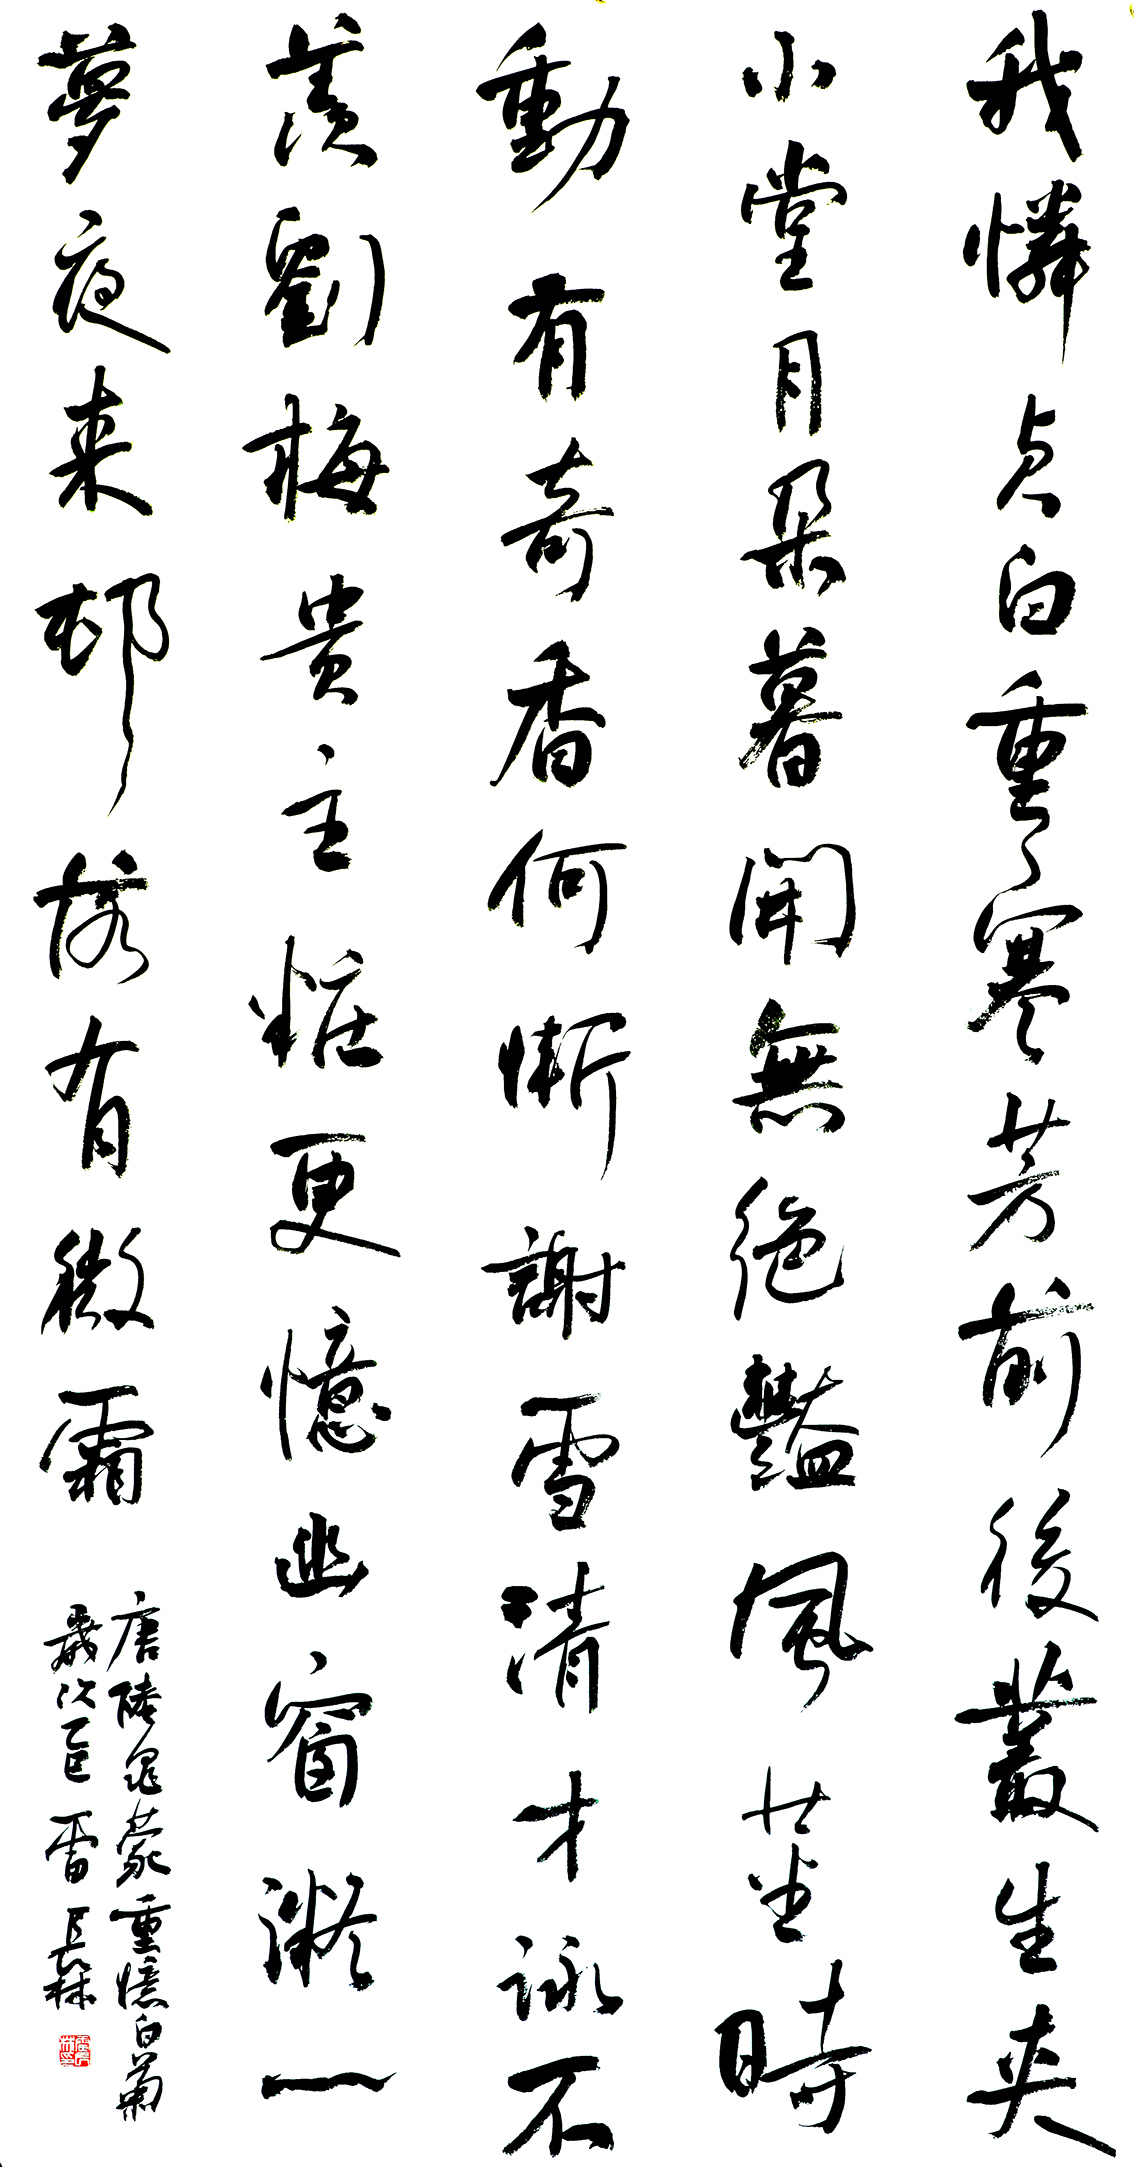 我憐貞白重寒芳前後叢生夾
小堂月朵暮開無絕豔風莖時
動有奇香何慚謝雪清才詠不
羨劉梅貴主粧更憶幽窗凝一
夢夜来邨落有微霜
唐陸龜蒙重憶白菊
歲次乙巳雷長林